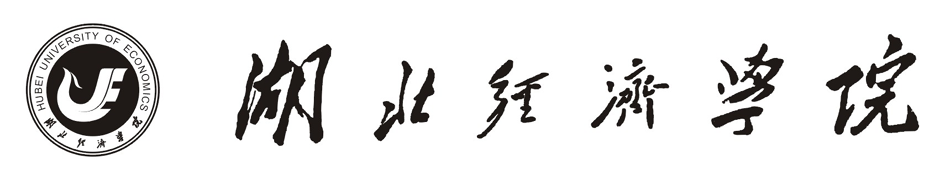 HUBEI UNIVERSITY OF ECONOMICS
湖北经济学院
湖北経濟學院